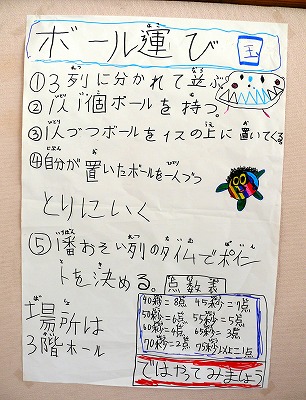 ボール運び 玉
①3列に分かれて並ぶ。
②1人1個ボールを持つ。
③1人づつボールをイスの上に置いてくる
④自分が置いたボールを一人づつ
とりにいく
⑤1番おそい列のタイムでポイン
トを決める。
点数表
40秒=8点 45秒=7点
50秒=6点 55秒=5点
60秒=4点 65秒=3点
70秒=2点 75秒以上=1点
場所は
3階ホール
ではやってみましょう